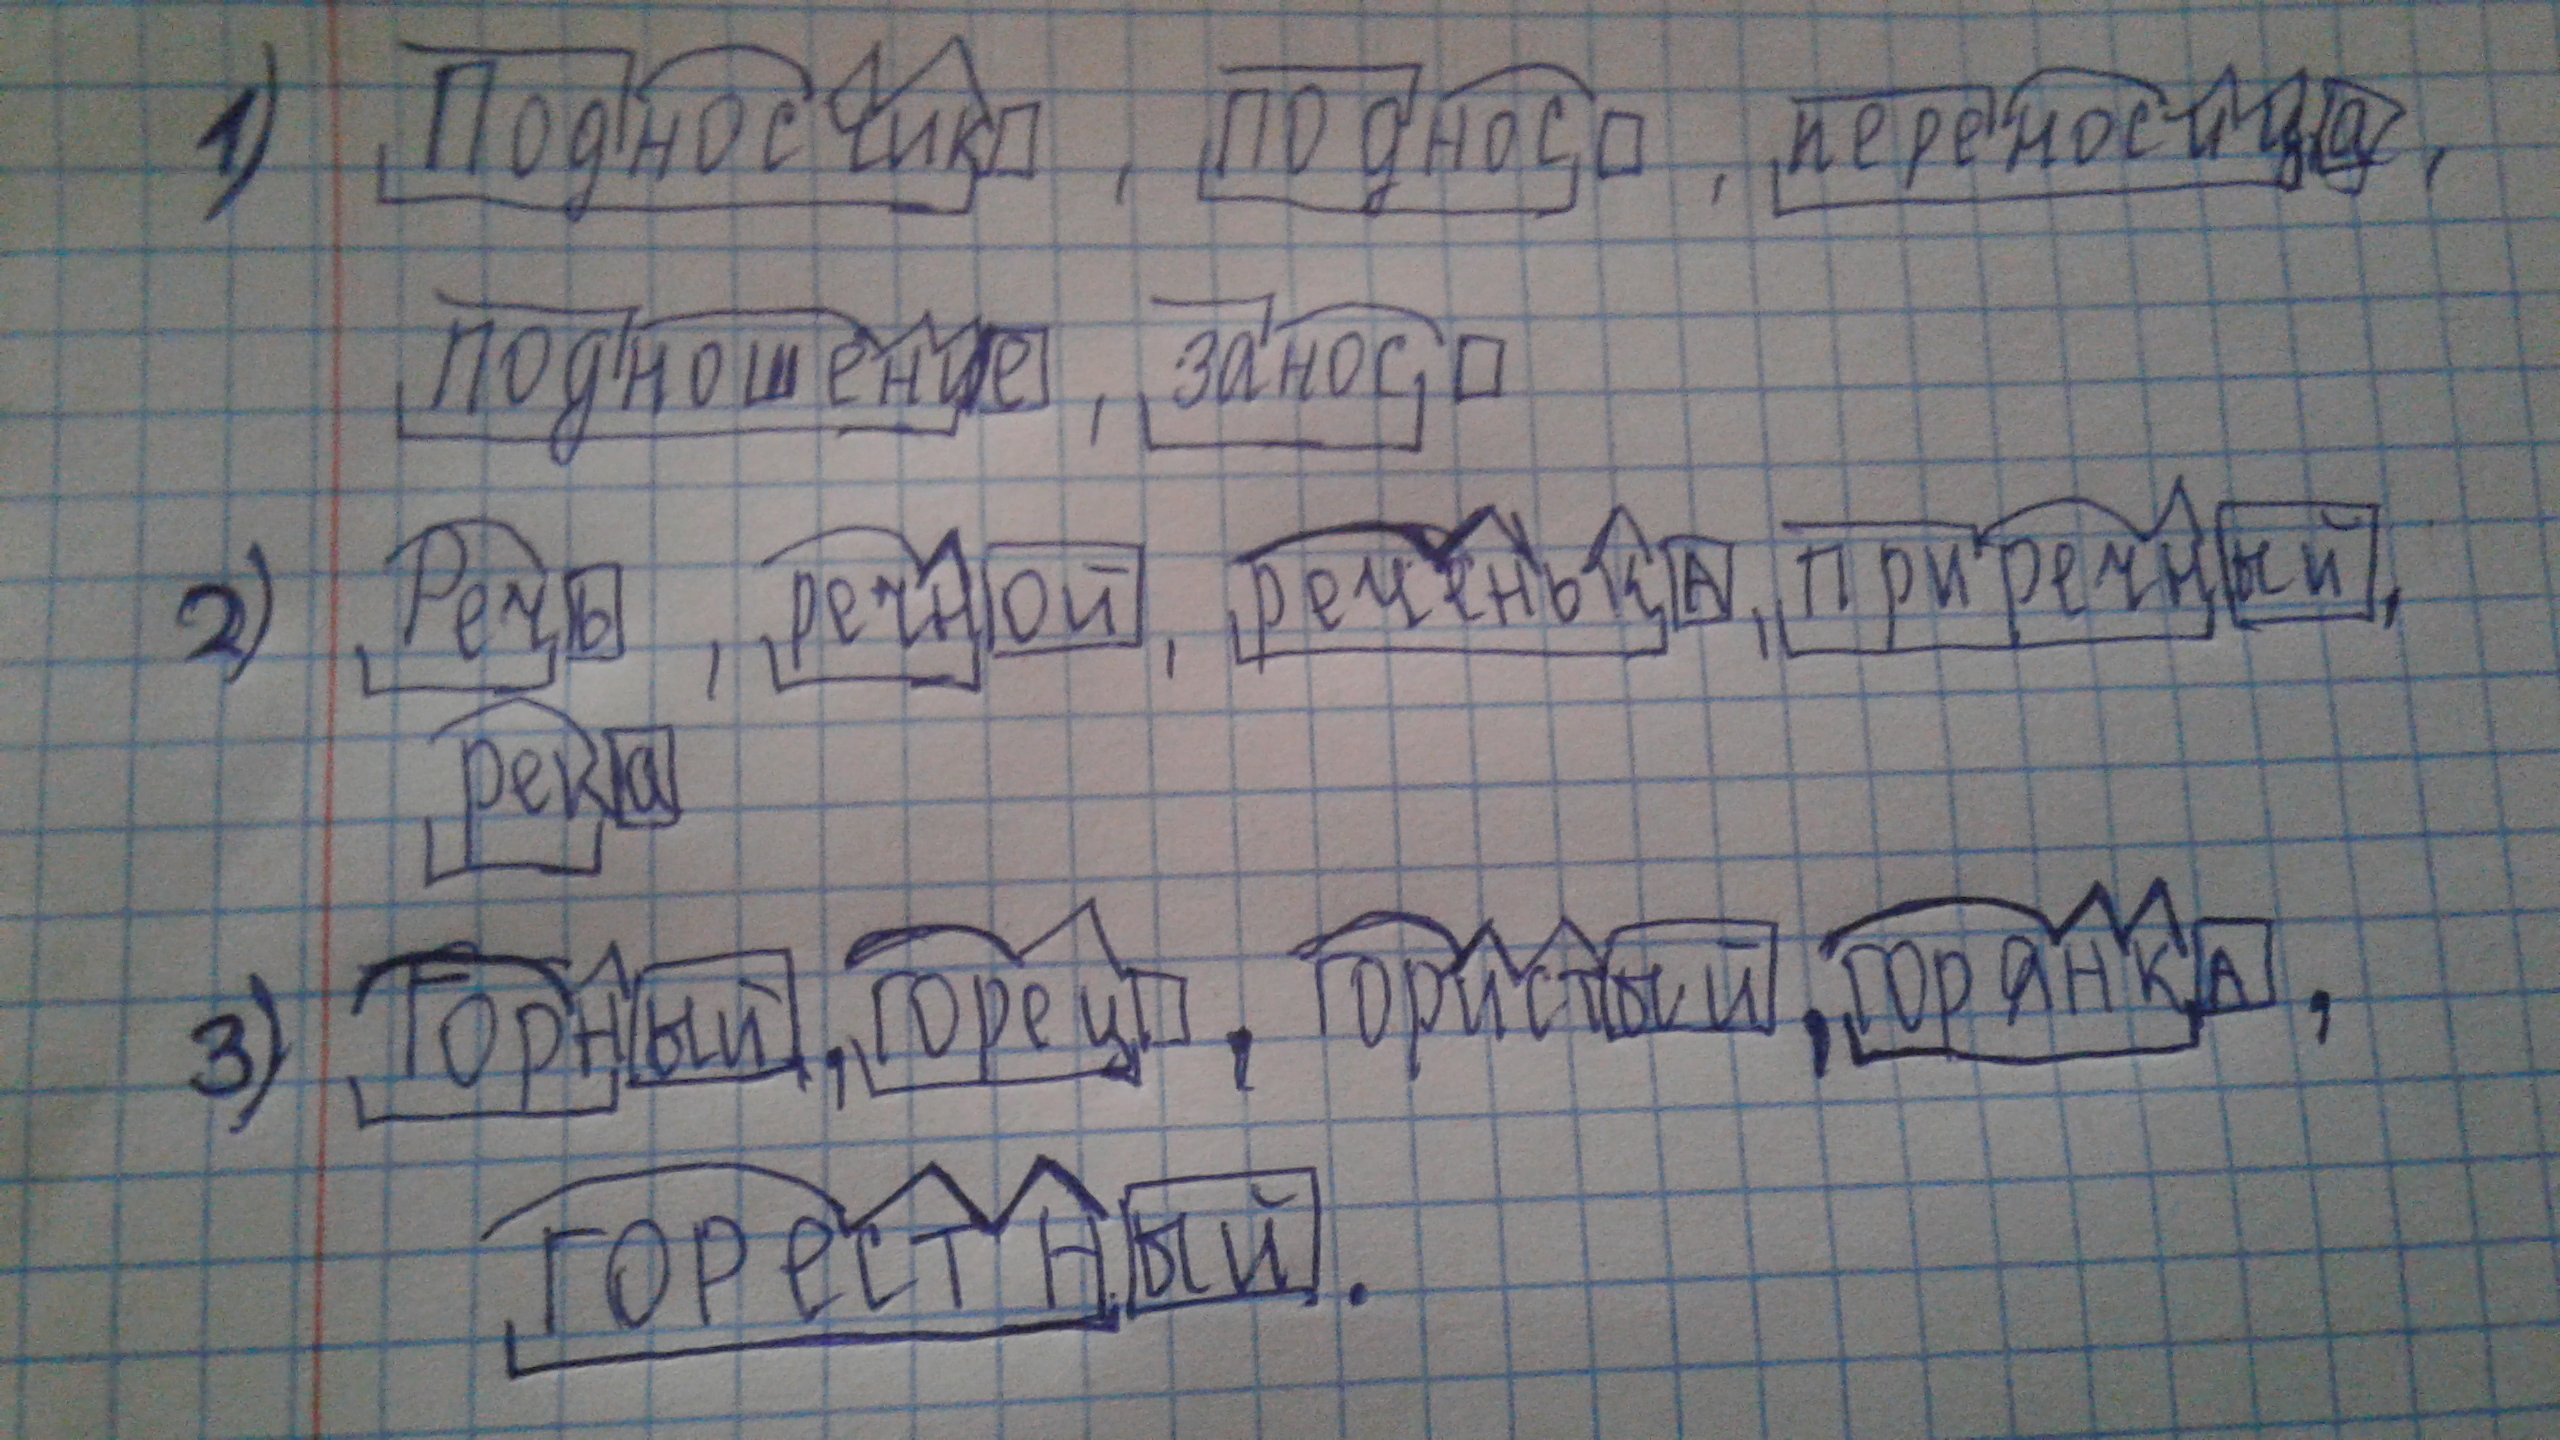 1) Подносчик, поднос, переносица,
подношение, занос
2) Речь, речной, реченька, приречный,
река
3) Горный, горец, гористый, горянка,
горестный.